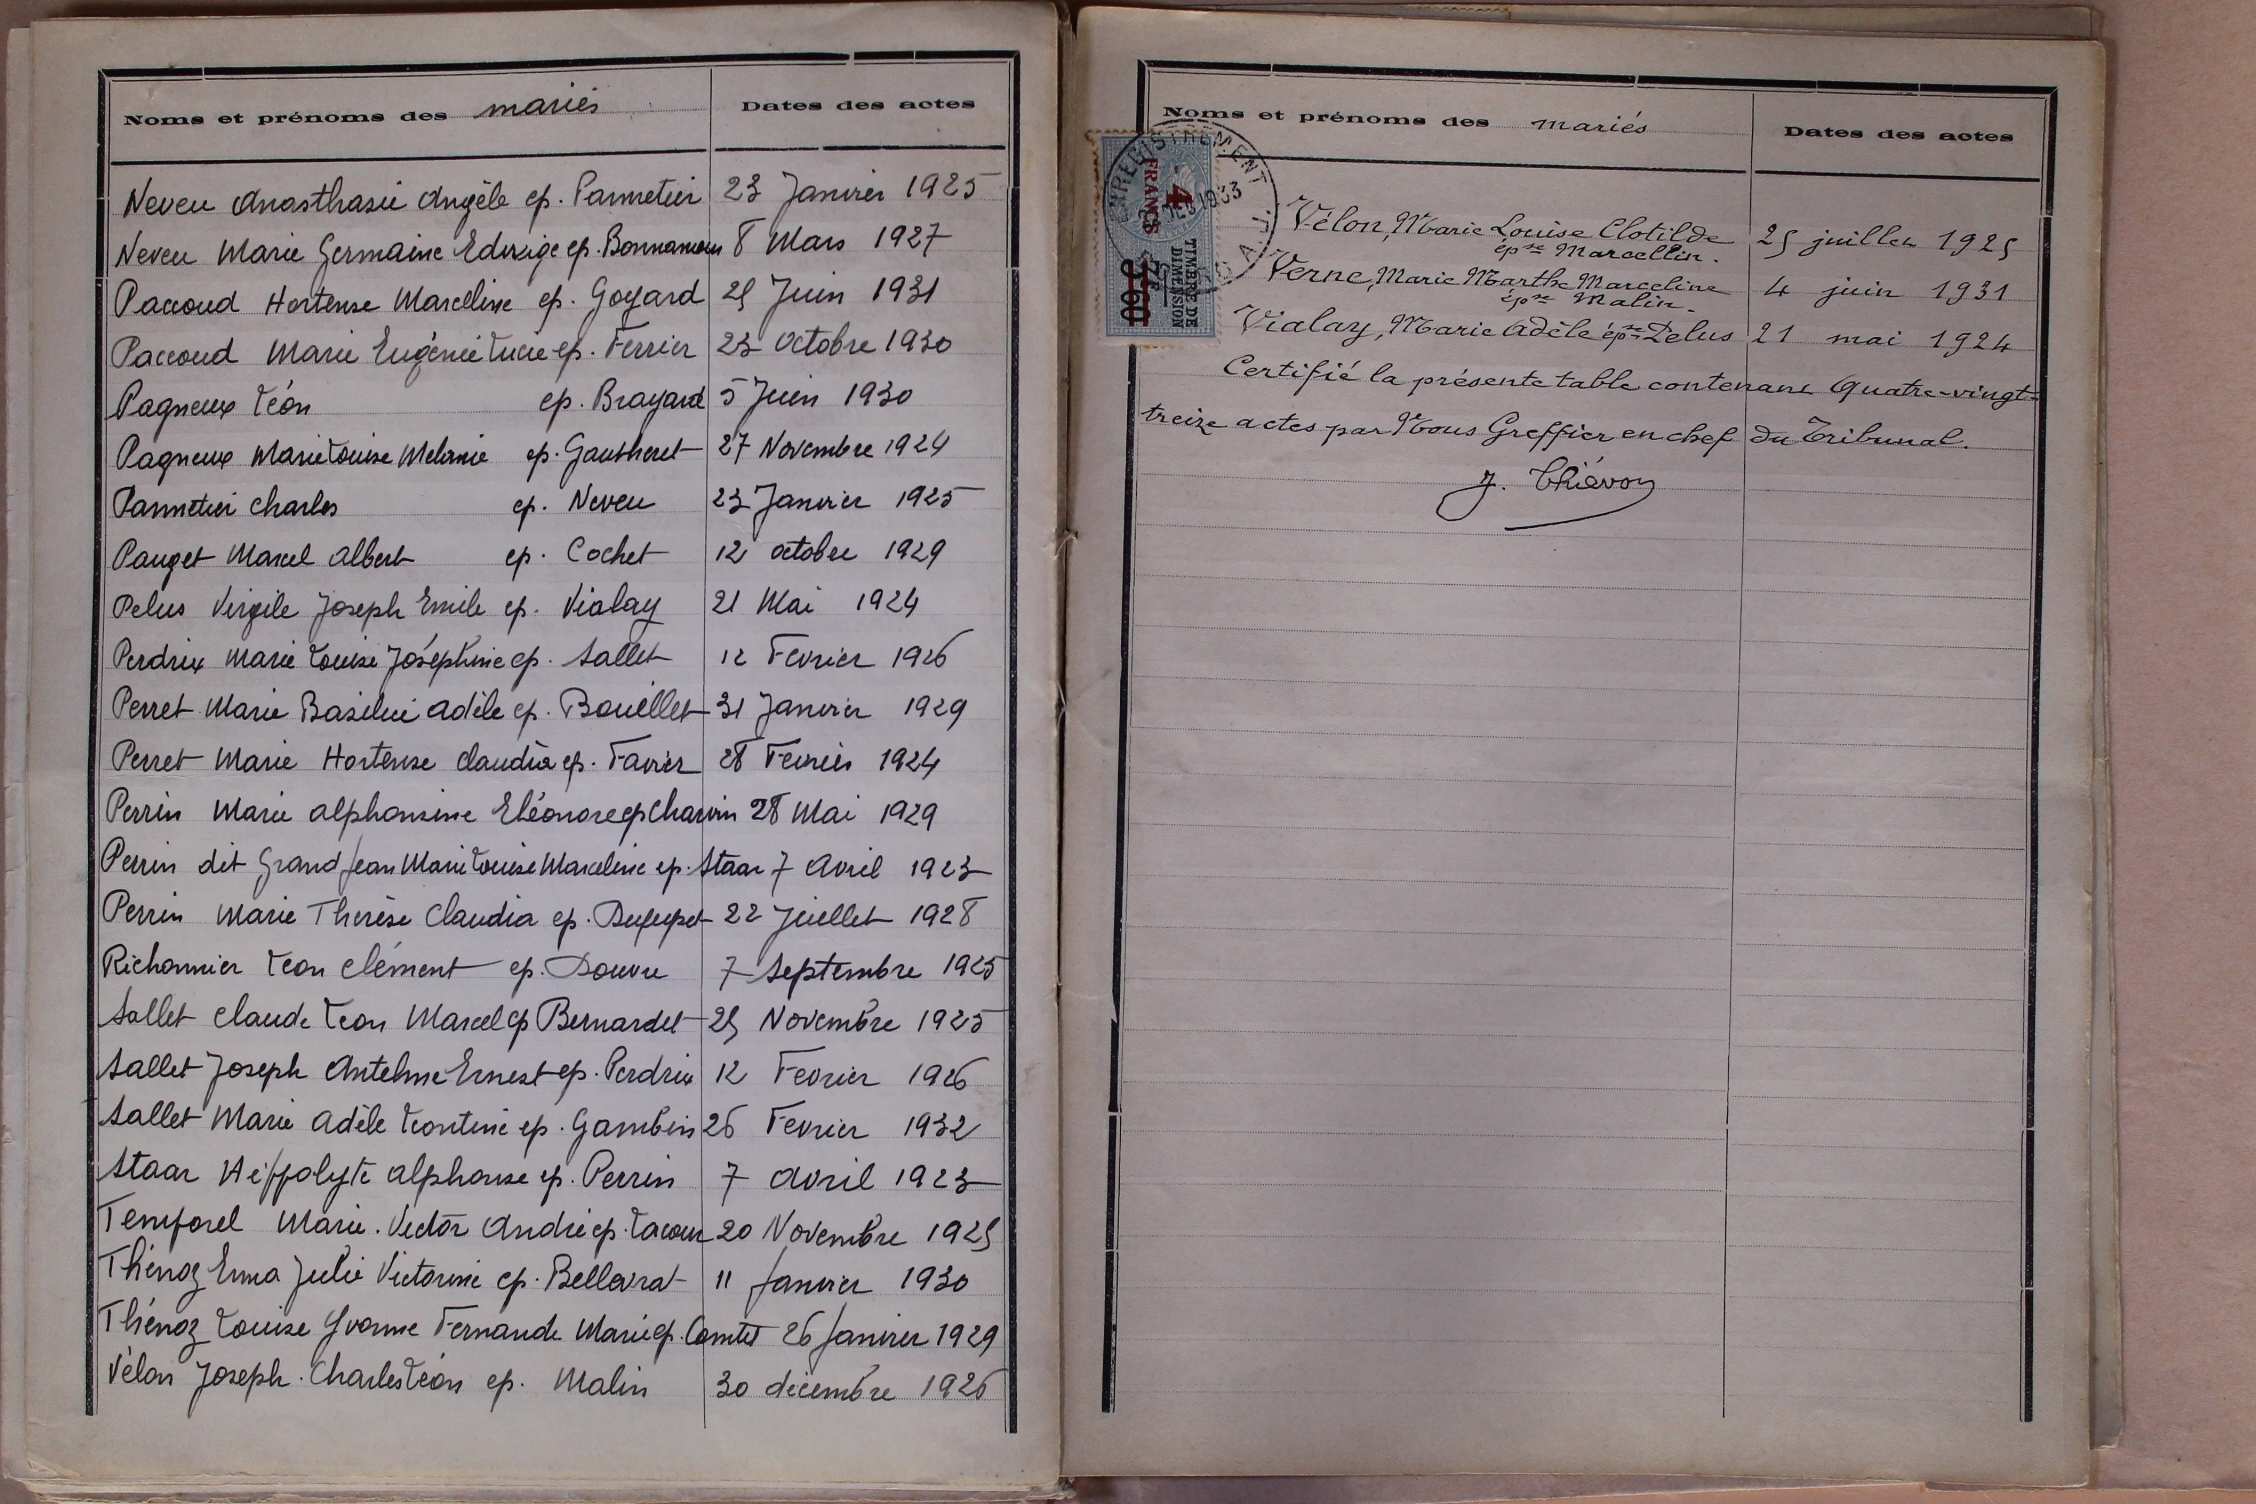 Noms et prénoms des mariés Dates des actes
Neveu Anasthasie Angèle ep. Pannetier 23 Janvier 1925
Neveu Marie Germaine Edwige ep. Bonnamour 8 Mars 1927
Paccoud Hortense Marceline ep. Goyard 25 Juin 1931
Paccoud Marie Eugénie Lucie ep. Ferrier 23 Octobre 1930
Pagneux Léon ep. Brayard 5 Juin 1930
Pagneux Marie Louise Melanie ep. Gautheret 27 Novembre 1924
Pannetier Charles ep. Neveu 23 Janvier 1925
Pauget Marcel Albert ep. Cochet 12 octobre 1929
Pelus Virgile Joseph Emile ep. Vialay 21 Mai 1924
Perdrix Marie Louise Joséphine ep. Sallet 12 Fevrier 1926
Perret Marie Basilie Adèle ep. Bouillet 31 Janvier 1929
Perret Marie Hortense Claudia ep. Favier 28 Fevrier 1924
Perrin Marie Alphonsine Eléonore ep Charvin 28 Mai 1929
Perrin dit Grand Jean Marie Louise Marceline ep. Staar 7 Avril 1923
Perrin Marie Therèse Claudia ep. 22 Juillet 1928
Richonnier Léon Clément ep. Douvre 7 Septembre 1925
Sallet Claude Léon Marcel ep Bernardet 25 Novembre 1925
Sallet Joseph Anthelme Ernest ep. Perdrix 12 Fevrier 1926
Sallet Marie Adèle Léontine ep. Gambin 26 Fevrier 1932
Staar Hippolyte Alphonse ep. Perrin 7 Avril 1923
Temporel Marie. Victor André ep. Lacour 20 Novembre 1925
Thénoz Erma Julie Victorine ep. Bellevrat 11 Janvier 1930
Thénoz Louise Yvonne Fernande Marie ep. Comtet 26 Janvier 1929
Vélon Joseph. Charles Léon ep. Malin 30 décembre 1926
Noms et prénoms des mariés Dates des actes
ENREGISTREMENT
4
FRANCS
1933
TIMBRE DE
DIMENSION
3F60
Vélon, Marie Louise Clotilde 25 juillet 1925
épse Marcellin.
Verne, Marie Marthe Marceline 4 juin 1931
épse Malin.
Vialay, Marie Adèle épse Pelus 21 mai 1924
Certifié la présente table contenant Quatre-vingt-
treize actes par Nous Greffier en chef du Tribunal.
J. Thiévon